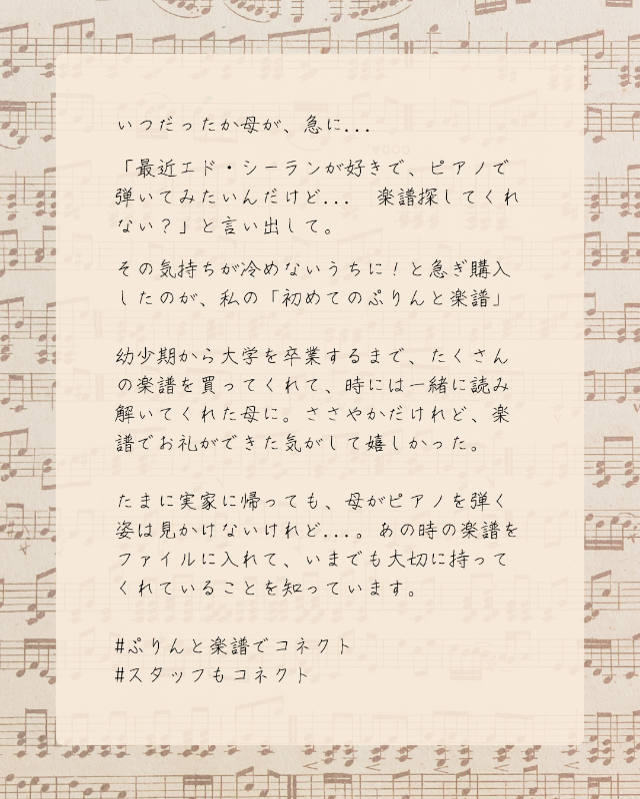 いつだったか母が、急に...
「最近エド・シーランが好きで、ピアノで
弾いてみたいんだけど... 楽譜探してくれ
ない？」と言い出して。
その気持ちが冷めないうちに！と急ぎ購入
したのが、私の「初めてのぷりんと楽譜」
幼少期から大学を卒業するまで、たくさん
の楽譜を買ってくれて、時には一緒に読み
解いてくれた母に。ささやかだけれど、楽
譜でお礼ができた気がして嬉しかった。
たまに実家に帰っても、母がピアノを弾く
姿は見かけないけれど...。あの時の楽譜を
ファイルに入れて、いまでも大切に持って
くれていることを知っています。
#ぷりんと楽譜でコネクト
#スタッフもコネクト